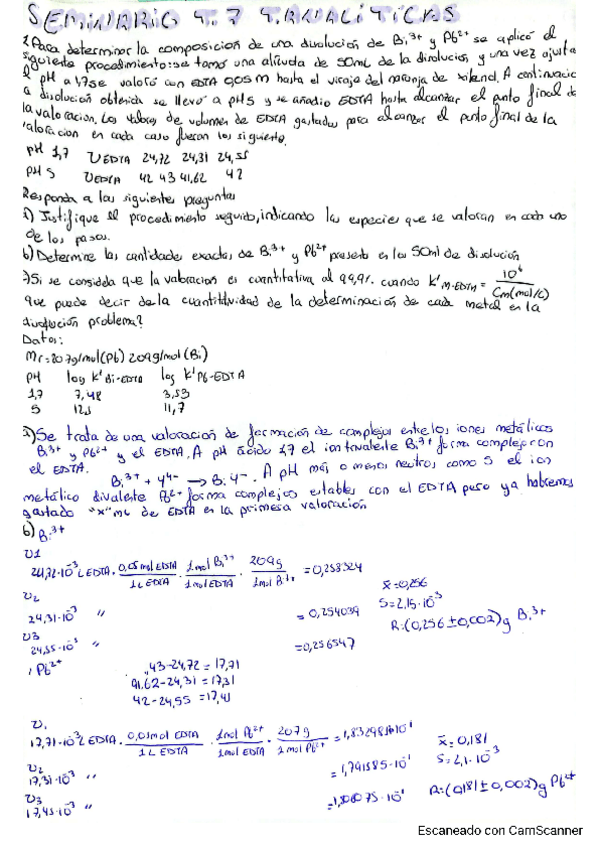 SEMINARIO T.7 T.ANALÍTICAS
2. Para determinar la composición de una disolución de Bi3+ y Pb2+ se aplicó el
siguiente procedimiento: se tomó una alícuota de 50mL de la disolución, y una vez ajusta
el pH a 1,7 se valoró con EDTA 0,05 M hasta el viraje del naranja de xilenol. A continuació
la disolución obtenida se llevó a pH 5 y se añadió EDTA hasta alcanzar el punto final de
la valoración. Los valores de volumen de EDTA gastados para alcanzar el punto final de la
valoración en cada caso fueron los siguiente.
pH 1,7 VEDTA 24,72 24,31 24,55
pH 5 VEDTA 42 43 41,62 42
Responda a las siguientes preguntas
a) Justifique el procedimiento seguido, indicando las especies que se valoran en cada uno
de los pasos.
b) Determine las cantidades exactas de Bi3+ y Pb2+ presente en los 50ml de disolución
Si se considera que la valoración es cuantitativa al 99,9%. cuando K'M-EDTA = 10^6 / CM(mol/L)
que puede decir de la cuantitividad de la determinación de cada metal en la
disolución problema?
Datos:
Mr=207g/mol(Pb) 209g/mol(Bi)
pH log K'Bi-EDTA log K'Pb-EDTA
1,7 7,48 3,53
5 11,7
a) Se trata de una valoración de formación de complejos entre los iones metálicos
Bi3+ y Pb2+ y el EDTA. A pH ácido 1,7 el ion trivalente Bi3+ forma complejo con
el EDTA.
Bi3+ + Y4- → BiY-. A pH más o menos neutros como 5 el ion
metálico divalente Pb2+ forma complejos estables con el EDTA pero ya habremos
gastado "x" mL de EDTA en la primera valoración
b) Bi3+
V1
24,72·10-3 L EDTA · 0,05 mol EDTA / 1 L EDTA · 1 mol Bi3+ / 1 mol EDTA · 209g / 1 mol Bi3+ = 0,258324
x̄=0,256
V2
S=2,15·10-3
24,31·10-3 " = 0,254039
R:(0,256±0,002)g Bi3+
V3
24,55·10-3 " =0,256547
Pb2+ 43-24,72 = 17,71
41,62-24,31 = 17,31
42-24,55 = 17,45
V1
17,71·10-3 L EDTA · 0,05mol EDTA / 1 L EDTA · 1mol Pb2+ / 1mol EDTA · 207g / 1 mol Pb2+ = 1,832985·10-1
x̄=0,181
V2
S=2,1·10-3
17,31·10-3 " = 1,791585·10-1
V3
R:(0,181±0,002)g Pb2+
17,45·10-3 " =1,806075·10-1
Escaneado con CamScanner